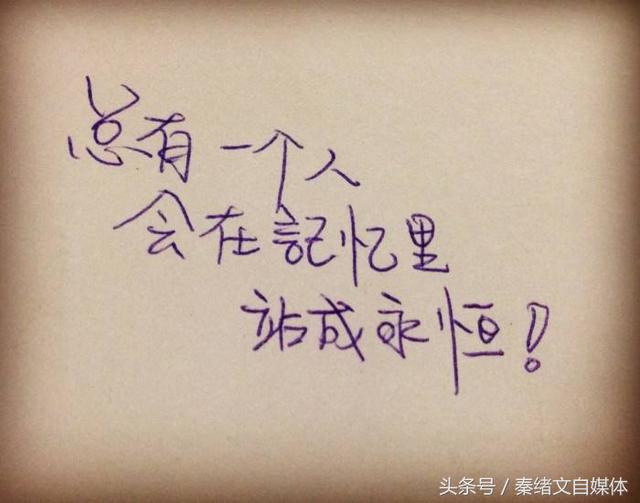 总有一个人
会在記忆里
站成永恒!
头条号/秦绪文自媒体